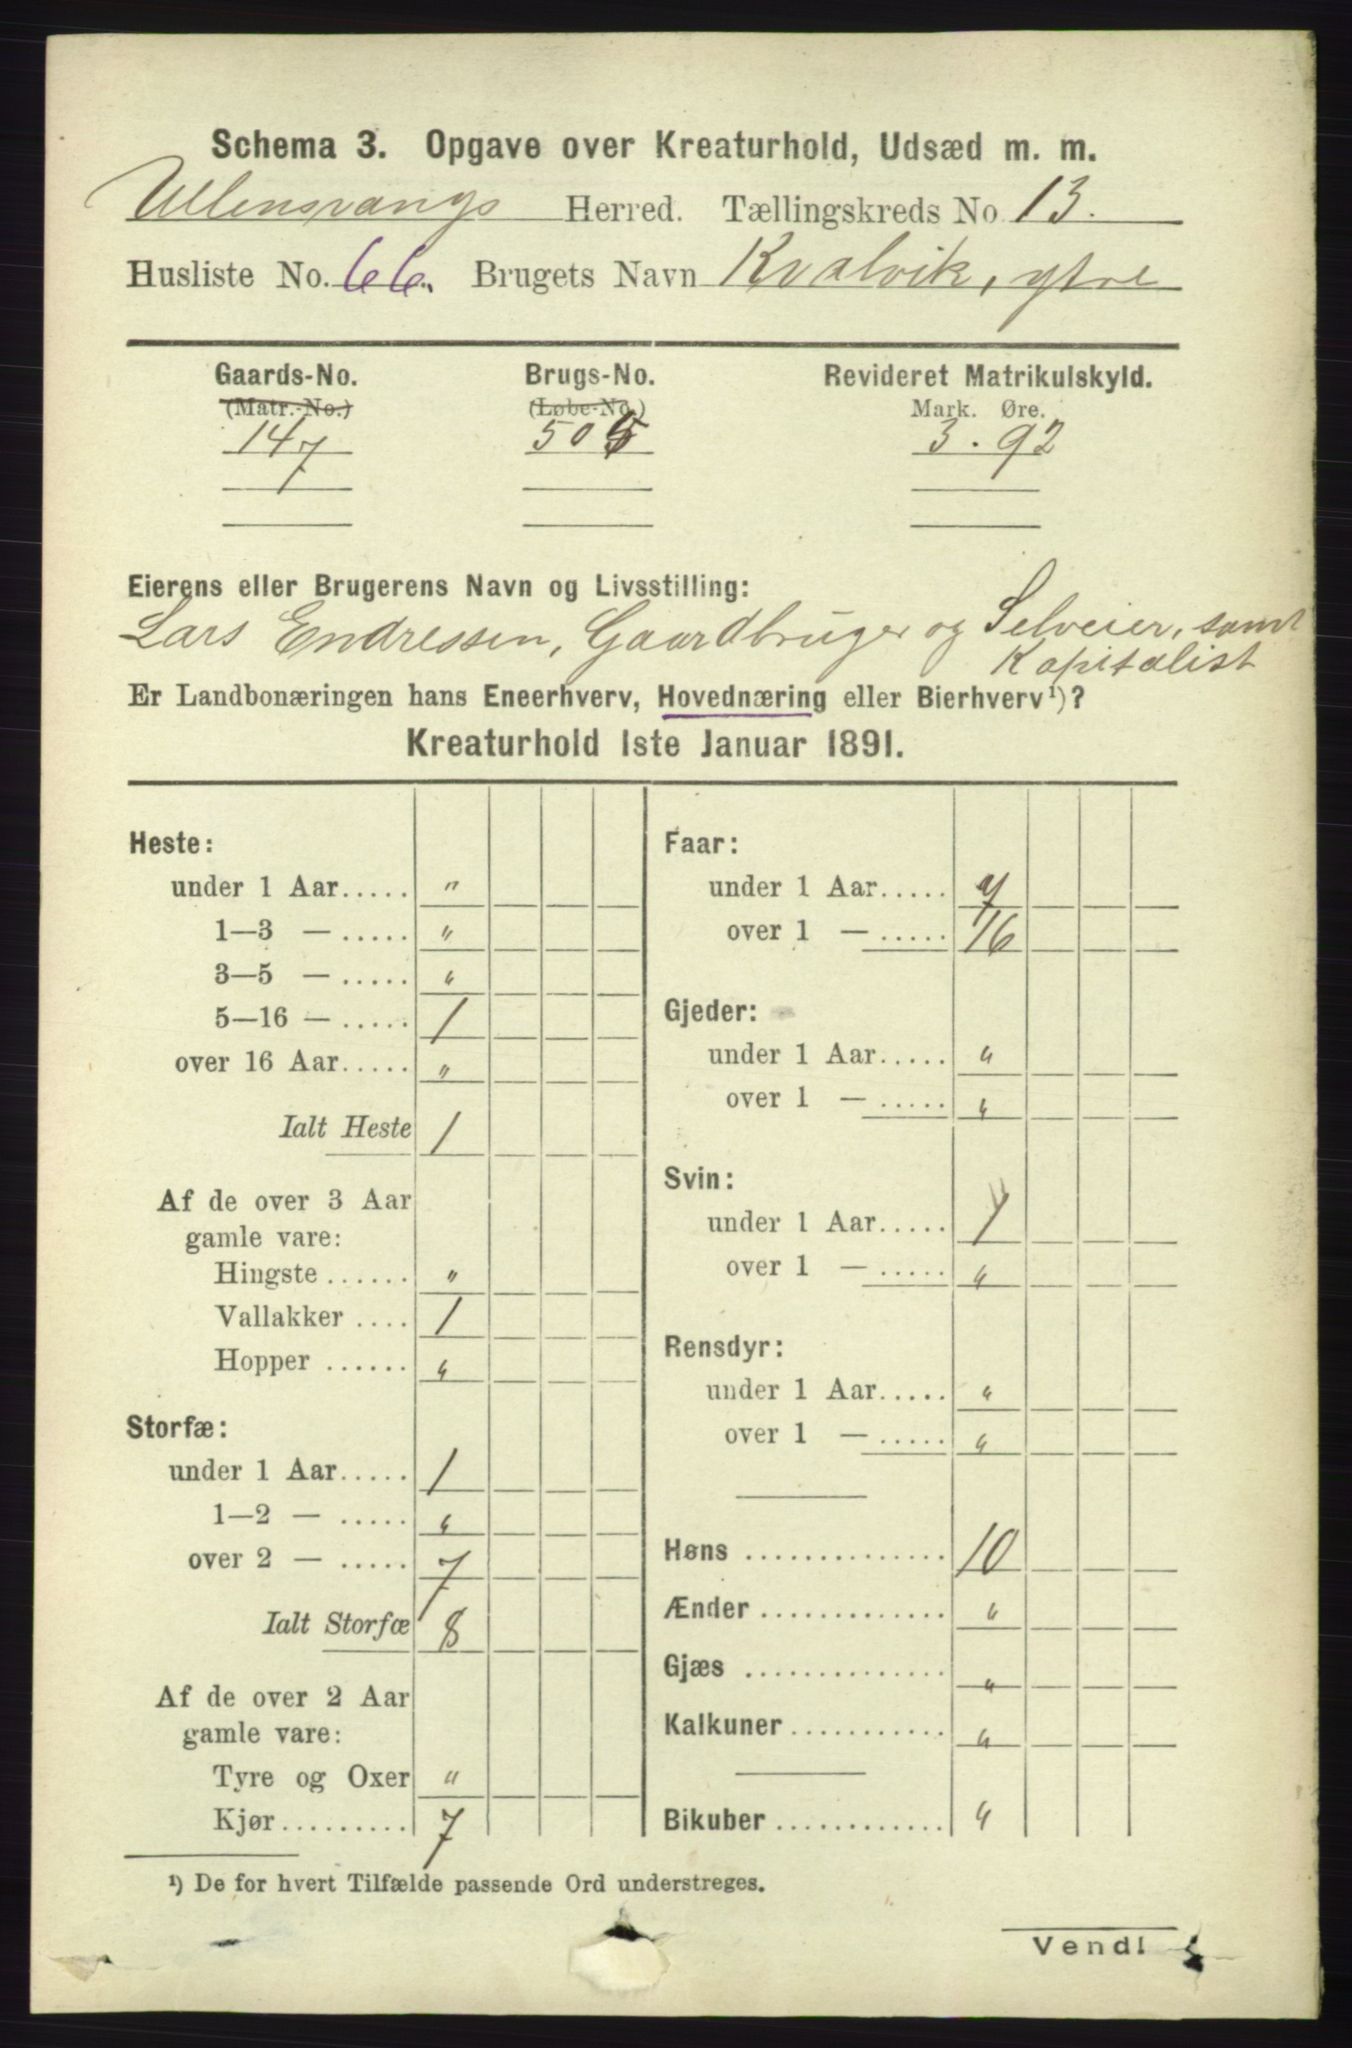 Schema 3. Opgave over Kreaturhold, Udsæd m. m.
Ullensvangs Herred. Tællingskreds No. 13.
Husliste No. 66. Brugets Navn Kvalvik, ytre
Gaards-No. Brugs-No. Revideret Matrikulskyld.
(Matr.-No.) (Løbe-No.) Mark. Øre.
147 3.92
Eierens eller Brugerens Navn og Livsstilling:
Lars Endressen, Gaardbruger og Selveier, samt
Kapitalist
Er Landbonæringen hans Eneerhverv, Hovednæring eller Bierhverv¹)?
Kreaturhold 1ste Januar 1891.
Heste:
under 1 Aar..... "
1—3 — ..... "
3—5 — ..... "
5—16 — ..... 1
over 16 Aar..... "
Ialt Heste 1
Af de over 3 Aar
gamle vare:
Hingste ...... "
Vallakker .... 1
Hopper ...... "
Storfæ:
under 1 Aar..... 1
1—2 — ..... "
over 2 — ..... 7
Ialt Storfæ 8
Af de over 2 Aar
gamle vare:
Tyre og Oxer "
Kjør......... 7
Faar:
under 1 Aar.....
over 1 — ..... 16
Gjeder:
under 1 Aar..... "
over 1 — ..... "
Svin:
under 1 Aar..... 1
over 1 — ..... "
Rensdyr:
under 1 Aar..... "
over 1 — ..... "
Høns .............. 10
Ænder ............. "
Gjæs .............. "
Kalkuner ........... "
Bikuber ............ "
¹) De for hvert Tilfælde passende Ord understreges.
Vend!